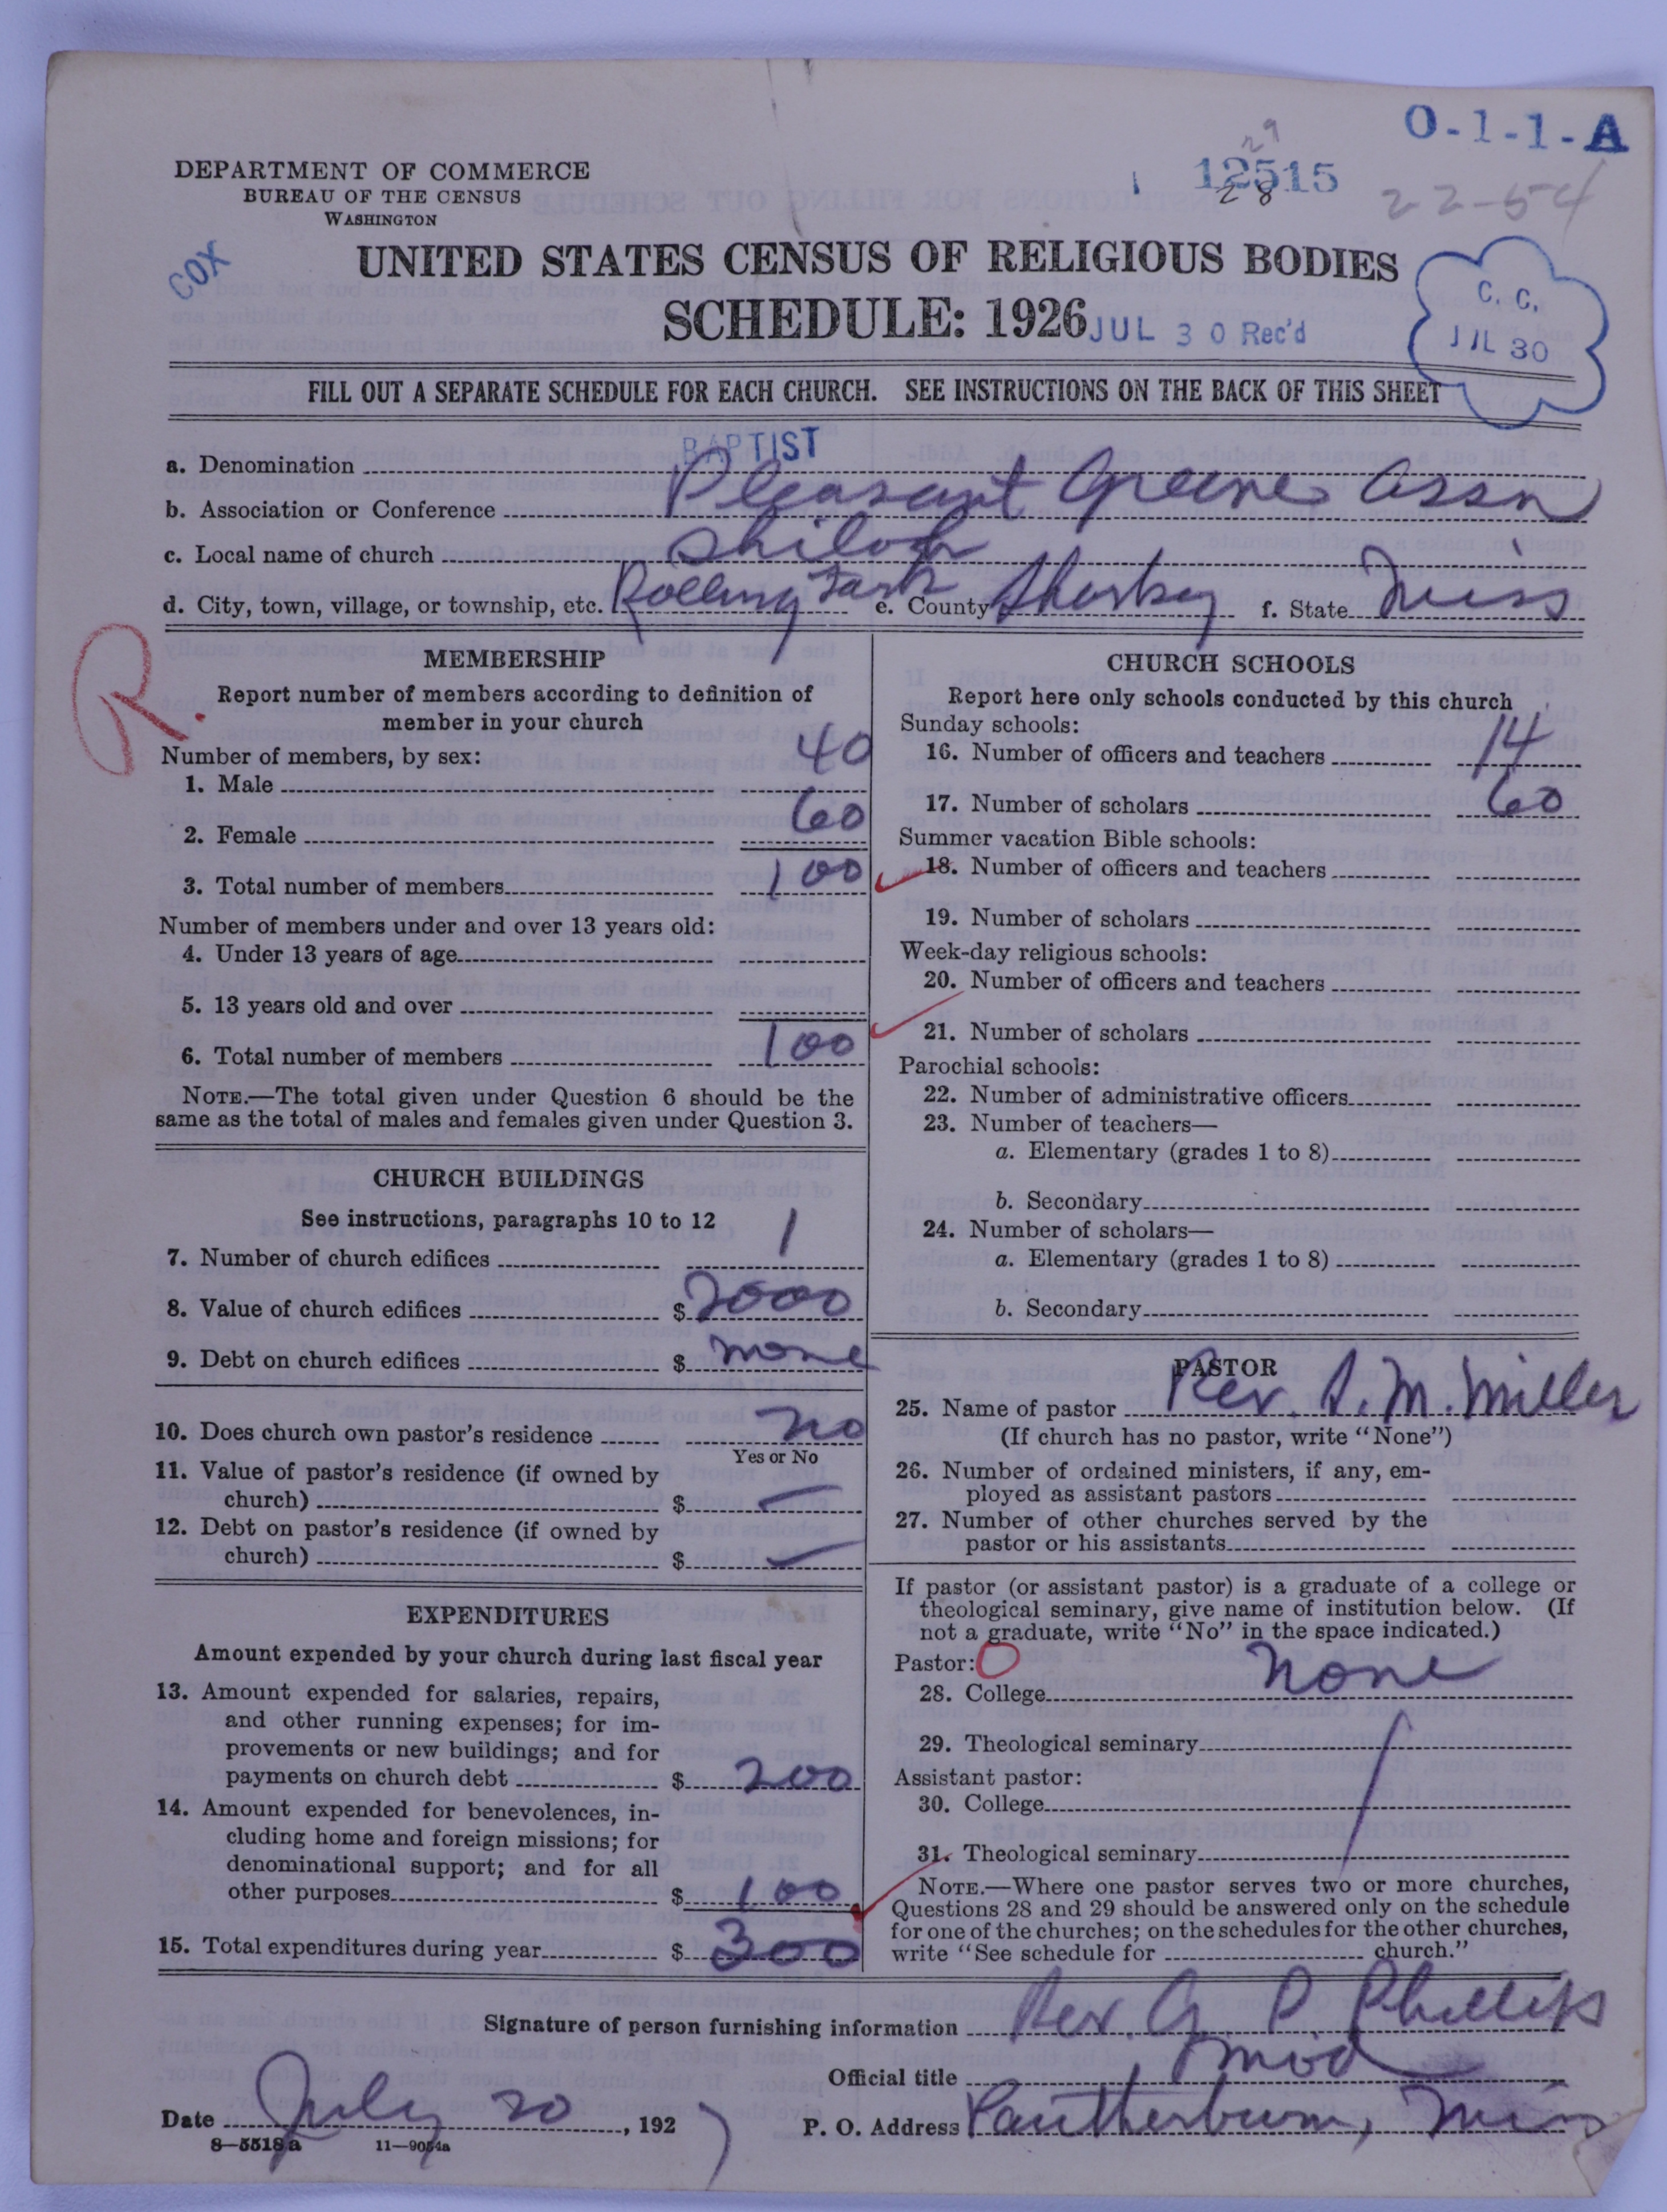 O-1-1-A
29
12515
28
22-54
DEPARTMENT OF COMMERCE
BUREAU OF THE CENSUS
WASHINGTON
COX
UNITED STATES CENSUS OF RELIGIOUS BODIES
SCHEDULE: 1926
JUL 30 Rec'd
C. C.
JUL 30
FILL OUT A SEPARATE SCHEDULE FOR EACH CHURCH. SEE INSTRUCTIONS ON THE BACK OF THIS SHEET
a. Denomination BAPTIST
b. Association or Conference Pleasant Greene Assn
c. Local name of church Shiloh
d. City, town, village, or township, etc. Rolling Fork e. County Sharkey f. State Miss
R.
MEMBERSHIP
Report number of members according to definition of
member in your church
Number of members, by sex:
1. Male 40
2. Female 60
3. Total number of members 100
Number of members under and over 13 years old:
4. Under 13 years of age
5. 13 years old and over
6. Total number of members 100
NOTE.—The total given under Question 6 should be the
same as the total of males and females given under Question 3.
CHURCH BUILDINGS
See instructions, paragraphs 10 to 12
7. Number of church edifices 1
8. Value of church edifices $ 2000
9. Debt on church edifices $ none
10. Does church own pastor's residence no
Yes or No
11. Value of pastor's residence (if owned by
church) $ —
12. Debt on pastor's residence (if owned by
church) $ —
EXPENDITURES
Amount expended by your church during last fiscal year
13. Amount expended for salaries, repairs,
and other running expenses; for im-
provements or new buildings; and for
payments on church debt $ 200
14. Amount expended for benevolences, in-
cluding home and foreign missions; for
denominational support; and for all
other purposes $ 100
15. Total expenditures during year $ 300
CHURCH SCHOOLS
Report here only schools conducted by this church
Sunday schools:
16. Number of officers and teachers 14
17. Number of scholars 60
Summer vacation Bible schools:
18. Number of officers and teachers
19. Number of scholars
Week-day religious schools:
20. Number of officers and teachers
21. Number of scholars
Parochial schools:
22. Number of administrative officers
23. Number of teachers—
a. Elementary (grades 1 to 8)
b. Secondary
24. Number of scholars—
a. Elementary (grades 1 to 8)
b. Secondary
PASTOR
25. Name of pastor Rev. S. M. Miller
(If church has no pastor, write "None")
26. Number of ordained ministers, if any, em-
ployed as assistant pastors
27. Number of other churches served by the
pastor or his assistants
If pastor (or assistant pastor) is a graduate of a college or
theological seminary, give name of institution below. (If
not a graduate, write "No" in the space indicated.)
Pastor: 0
28. College none
29. Theological seminary
Assistant pastor:
30. College
31. Theological seminary
NOTE.—Where one pastor serves two or more churches,
Questions 28 and 29 should be answered only on the schedule
for one of the churches; on the schedules for the other churches,
write "See schedule for church."
Signature of person furnishing information Rev. G. P. Phillips
Official title Mod
Date July 20, 1927 P. O. Address Pantherburn, Miss
8—5518a 11—9054a